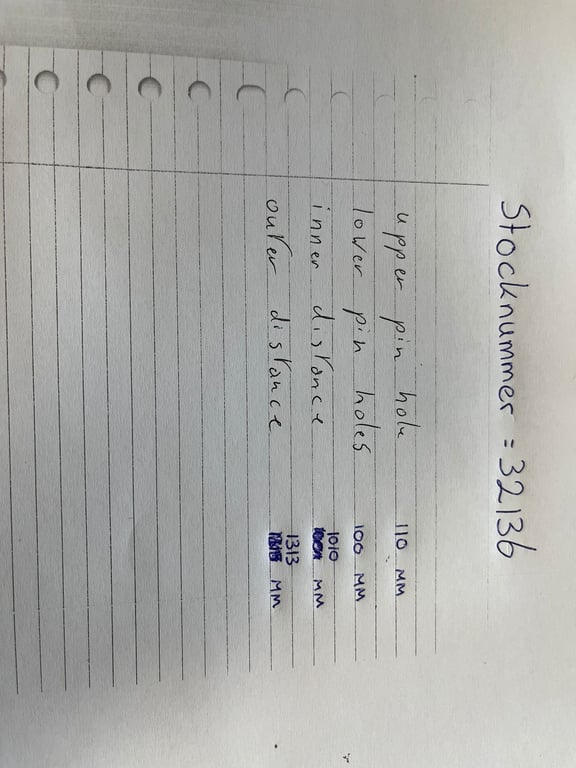 Stocknummer = 32136
upper pin hole 110 MM
lower pin holes 100 MM
inner distance 1010 MM
outer distance 1313 MM